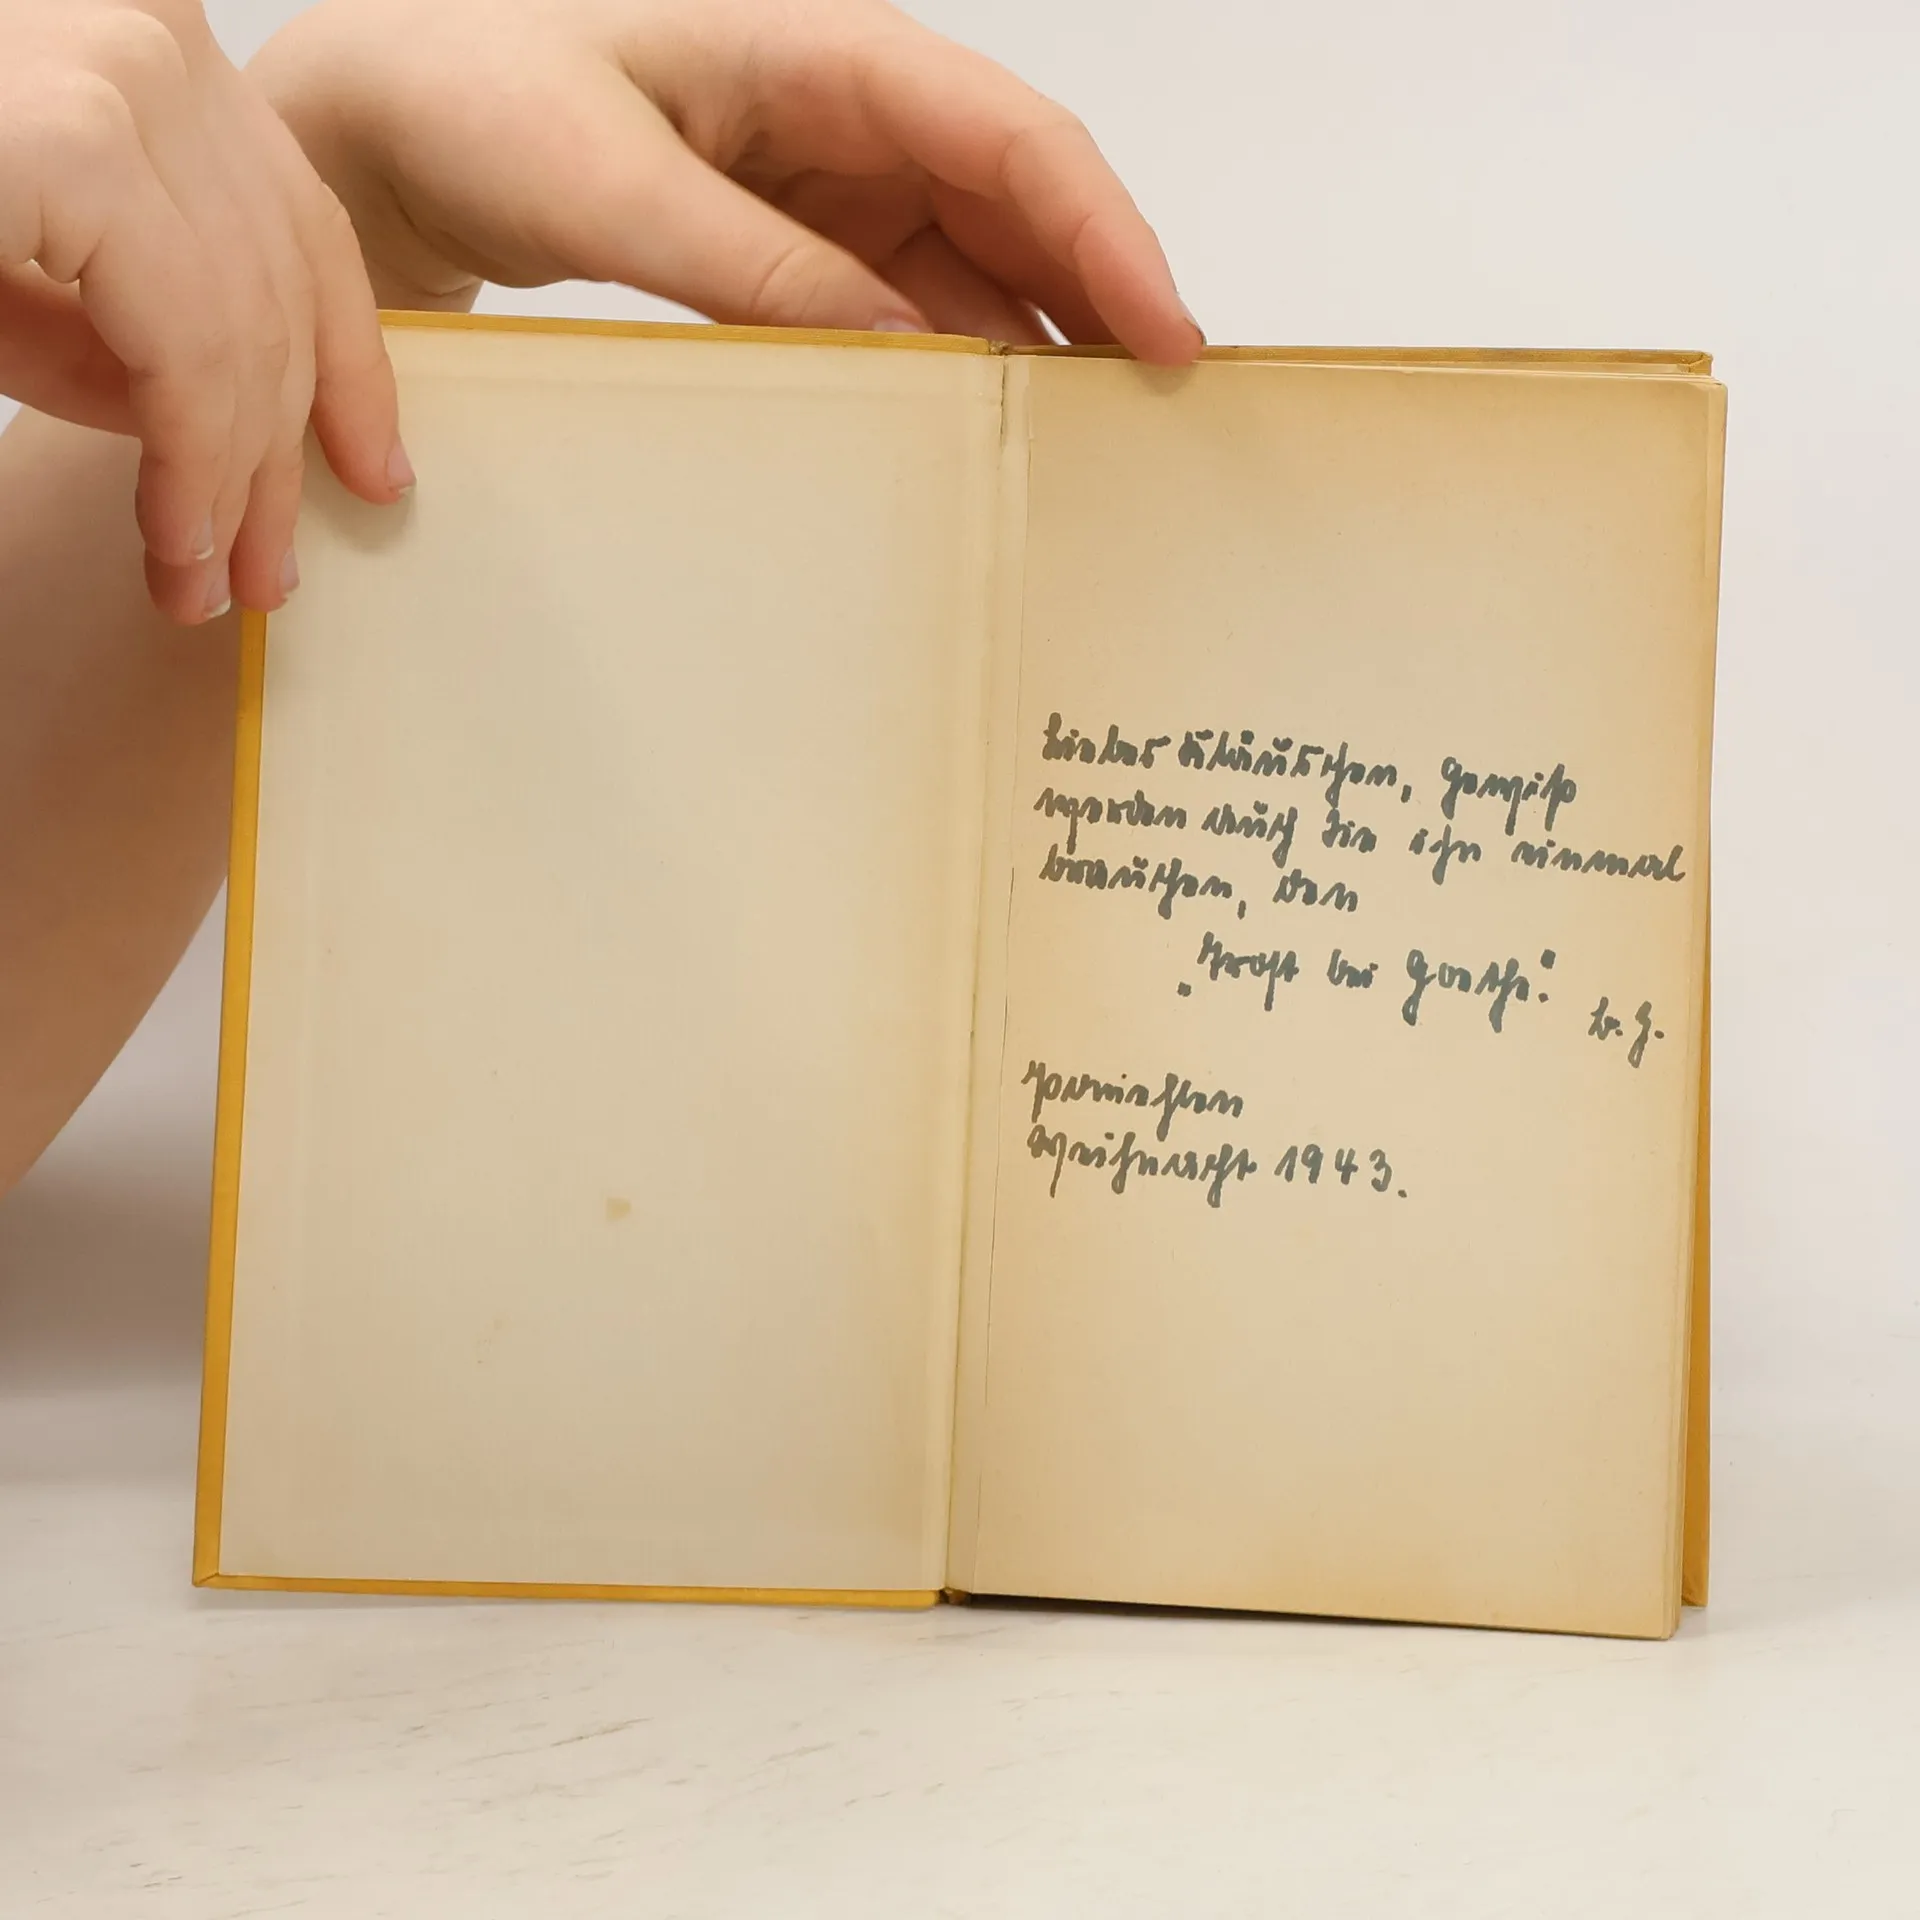 Liebes Kläuschen, gewiß
werden auch Sie ihn einmal
brauchen, den
„Trost bei Goethe".
Weihnacht 1943.